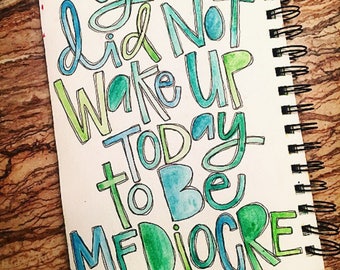 did NOT
Wake UP
TODAY
to Be
MEDiOCRE